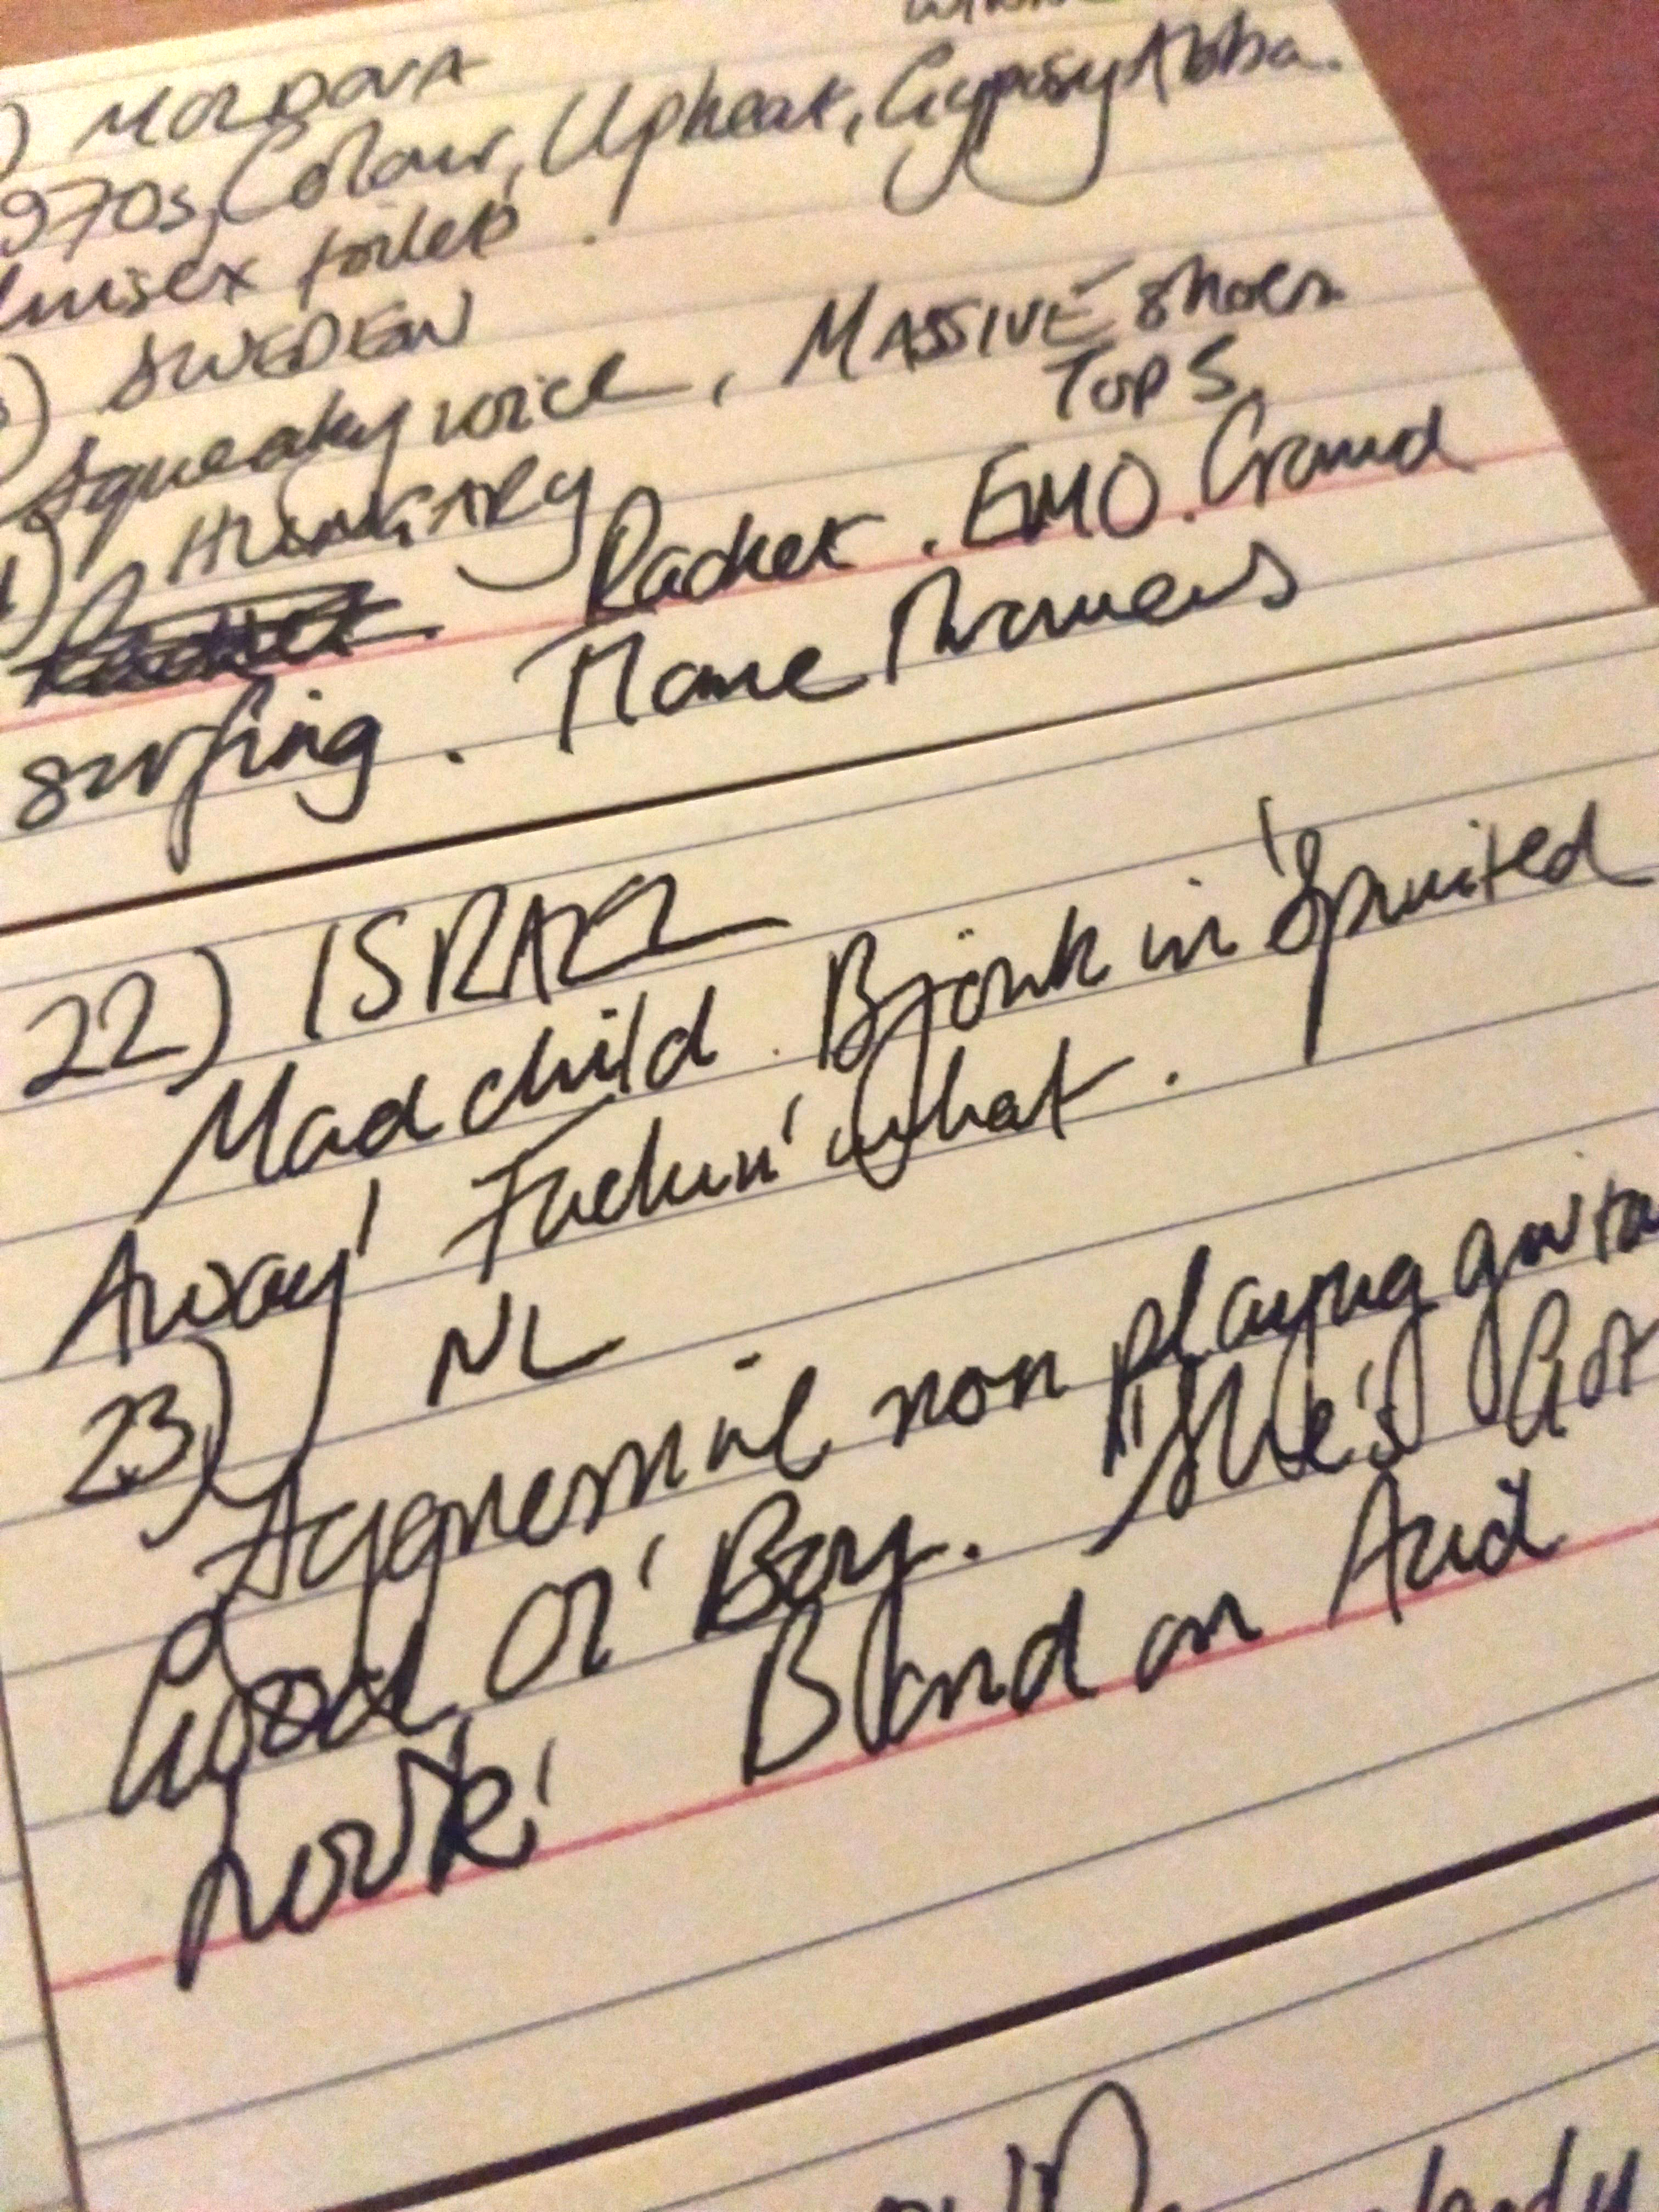 ) MOLDOVA
970s, Colour, Upbeat, Gypsy Abba.
Unisex toilet.
) SWEDEN
Squeaky voice, MASSIVE shoes
Top 5
) HUNGARY
Racket. EMO. Crowd
surfing. Flame Throwers
22) ISRAEL
Mad child. Björk in 'Spirited
Away' Fuckin' what.
23) NL
Aggressive non playing guita
Good Ol' Boy. "She's Got
Look' Bland on Acid
lady